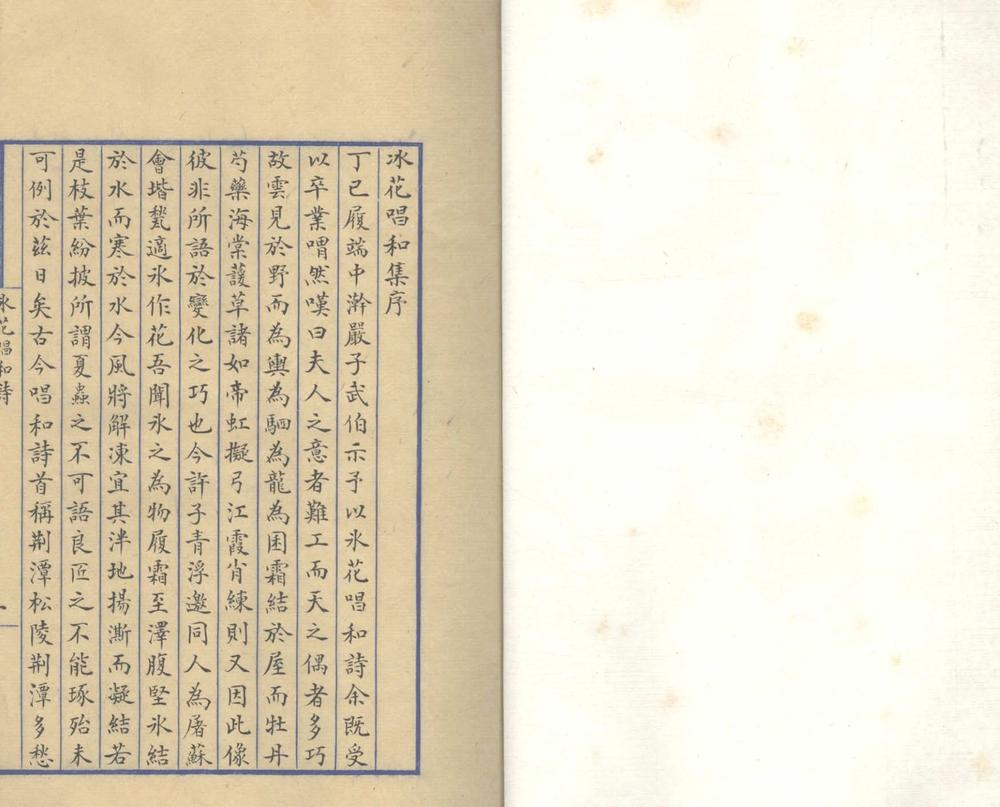 冰花唱和集序
丁已履端中澣嚴子武伯示予以氷花唱和詩余既受
以卒業喟然嘆曰夫人之意者難工而天之偶者多巧
故雲見於野而為輿為駟為龍為困霜結於屋而牡丹
芍藥海棠護草諸如帝虹擬弓江霞肖練則又因此像
彼非所語於變化之巧也今許子青浮邀同人為屠蘇
會堦甃適氷作花吾聞氷之為物履霜至澤腹堅氷結
於水而寒於水今風將解凍宜其泮地揚澌而凝結若
是枝葉紛披所謂夏蟲之不可語良匠之不能琢殆未
可例於茲日矣古今唱和詩首稱荆潭松陵荆潭多愁
氷花唱和詩
一